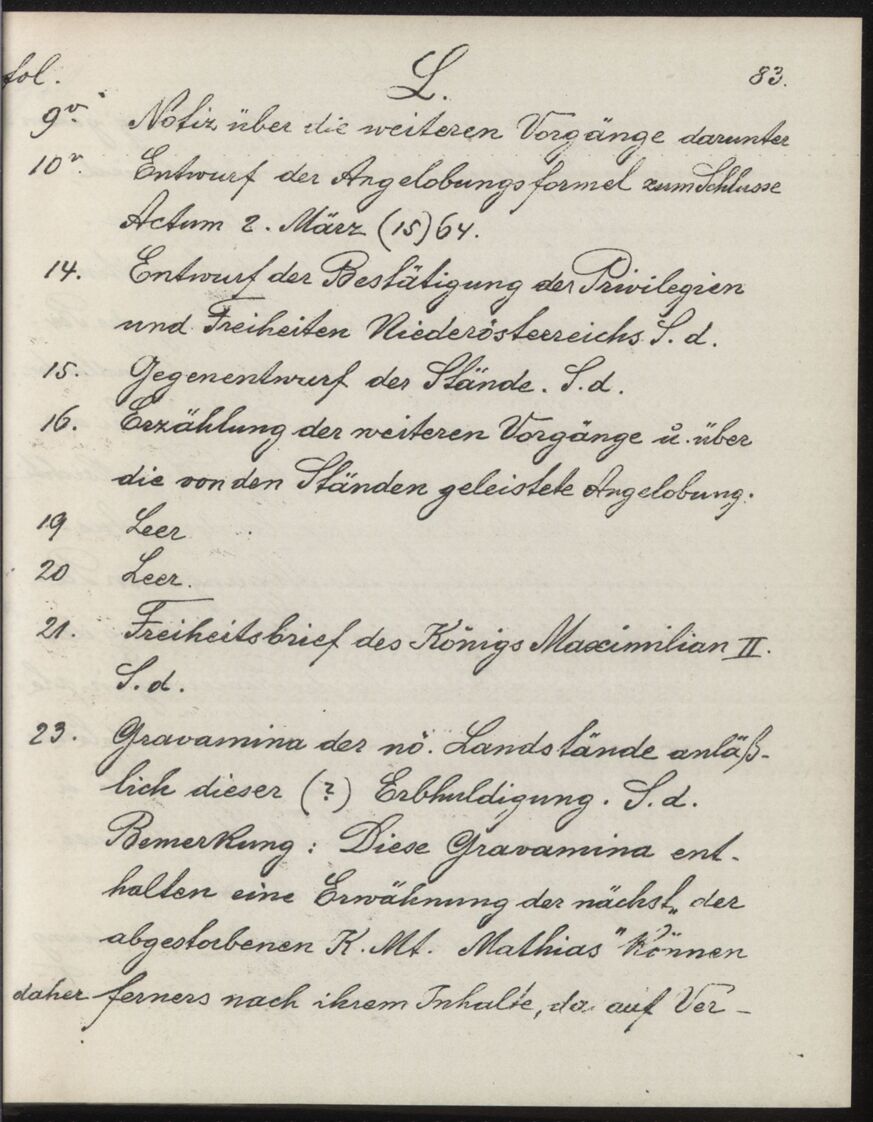 fol. L. 83.
9v. Notiz über die weiteren Vorgänge darunter
10r. Entwurf der Angelobungsformel zum Schlusse
Actum 2. März (15)64.
14. Entwurf der Bestätigung der Privilegien
und Freiheiten Niederösterreichs. S. d.
15. Gegenentwurf der Stände. S. d.
16. Erzählung der weiteren Vorgänge u. über
die von den Ständen geleistete Angelobung.
19 Leer
20 Leer.
21. Freiheitsbrief des Königs Maximilian II.
S. d.
23. Gravamina der nö. Landstände anläß-
lich dieser (?) Erbhuldigung. S. d.
Bemerkung: Diese Gravamina ent-
halten eine Erwähnung der nächst „der
abgestorbenen K. Mt. Mathias" können
daher ferners nach ihrem Inhalte, da auf Ver-